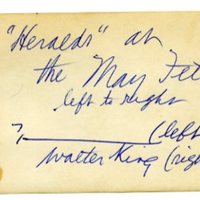 "Heralds" at
the May Fet
left to right
? __________ (left
Walter King (righ